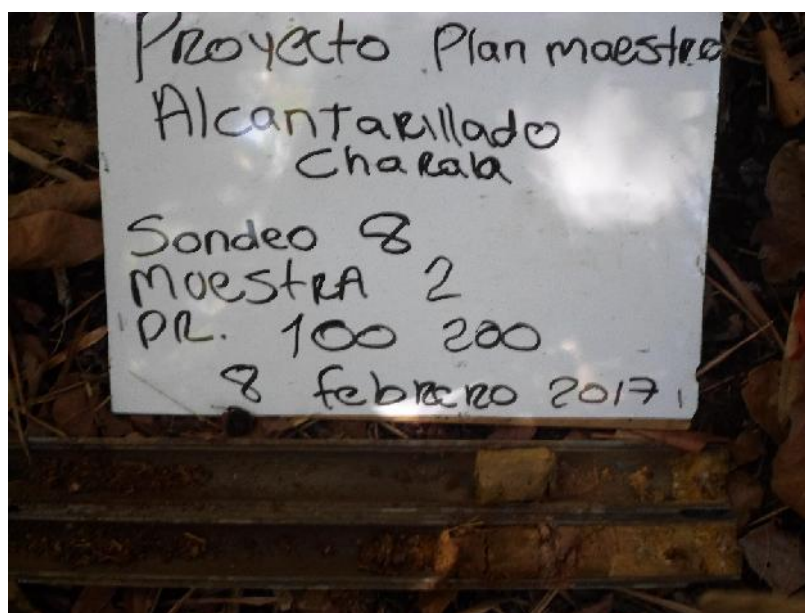 Proyecto Plan maestro
Alcantarillado
Charala
Sondeo 8
muestra 2
PR. 100 200
8 febrero 2017